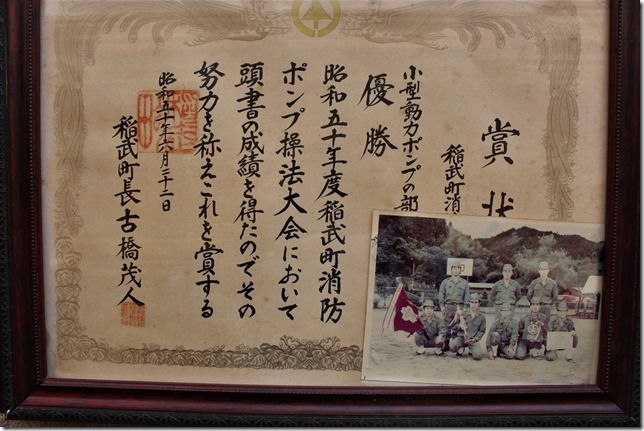 賞状
稲武町消
小型動力ポンプの部
優勝
昭和五十年度稲武町消防
ポンプ操法大会において
頭書の成績を得たのでその
努力を称えこれを賞する
昭和五十年六月二十二日
稲武町長古橋茂人